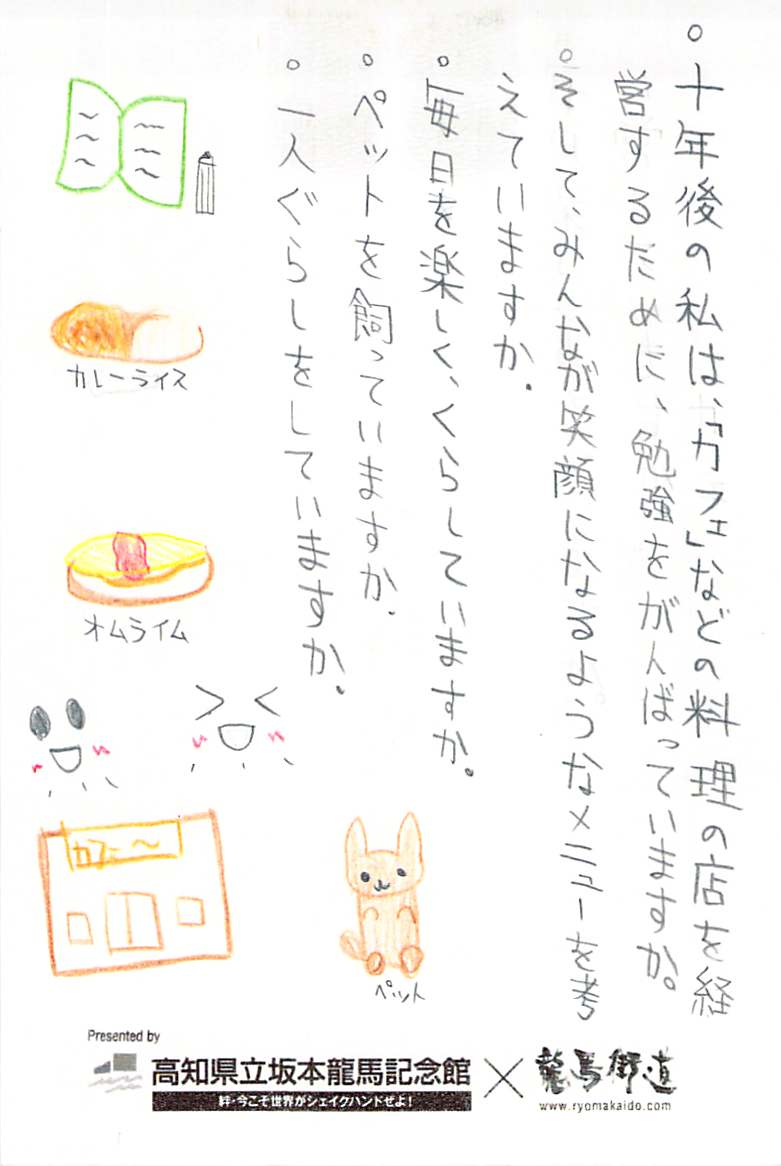 ○十年後の私は、「カフェ」などの料理の店を経
営するために、勉強をがんばっていますか。
○そして、みんなが笑顔になるようなメニューを考
えていますか。
○毎日を楽しく、くらしていますか。
○ペットを飼っていますか。
○一人ぐらしをしていますか。
カレーライス
オムライム
カフェ〜
ペット
Presented by
高知県立坂本龍馬記念館
絆・今こそ世界がシェイクハンドぜよ!
×
龍馬街道
www.ryomakaido.com